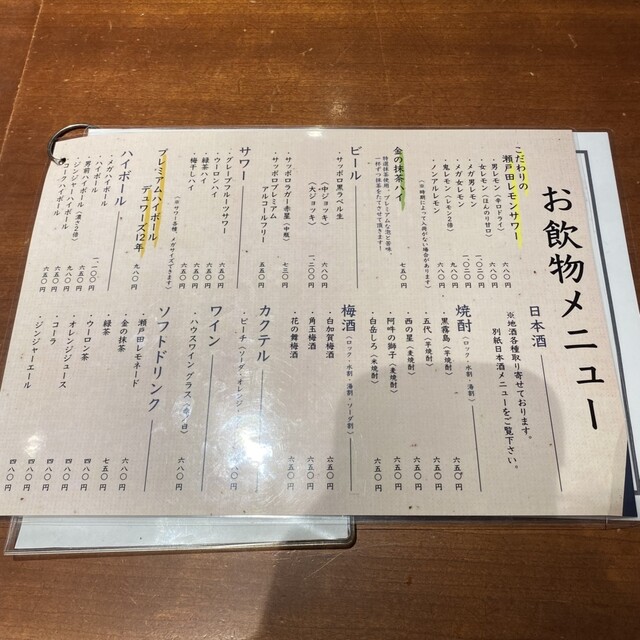 お飲物メニュー
こだわりの
瀬戸田レモンサワー
・男レモン（辛口ドライ） 六八〇円
・女レモン（ほんのり甘口） 六八〇円
・メガ男レモン 一〇二〇円
・メガ女レモン 一〇二〇円
・鬼レモン（レモン2倍） 七八〇円
・ノンアルレモン
（※時期によって入荷がない場合があります）
金の抹茶ハイ 七五〇円
特選抹茶使用、プレミアムな泡と苦味
一杯ずつ抹茶をたてさせて頂きます！
ビール
・サッポロ黒ラベル生
（中ジョッキ） 六八〇円
（大ジョッキ） 一二〇〇円
・サッポロラガー赤星（中瓶） 七三〇円
・サッポロプレミアム
アルコールフリー 五五〇円
サワー
・グレープフルーツサワー 六五〇円
・ウーロンハイ 六五〇円
・緑茶ハイ 六五〇円
・梅干しハイ 六五〇円
（※サワー各種、メガサイズできます）
プレミアムハイボール
デュワーズ12年 九八〇円
ハイボール
・メガハイボール 一一〇〇円
・ハイボール
・男前ハイボール（濃さ2倍） 九八〇円
・ジンジャーハイボール 六五〇円
・コークハイボール 六五〇円
日本酒
※地酒各種取り寄せております。
別紙日本酒メニューをご覧下さい。
焼酎
（ロック・水割・湯割）
・黒霧島（芋焼酎） 六五〇円
・五代（芋焼酎） 六五〇円
・西の星（麦焼酎） 六五〇円
・阿吽の獅子（麦焼酎） 六五〇円
・白岳しろ（米焼酎） 六五〇円
梅酒
（ロック・水割・湯割・ソーダ割）
・白加賀梅酒 六五〇円
・角玉梅酒 六五〇円
・花の舞梅酒 六五〇円
カクテル
・ピーチ（ソーダ・オレンジ・
ワイン
・ハウスワイングラス（赤・白） 六八〇円
ソフトドリンク
・瀬戸田レモネード 四八〇円
・金の抹茶 七五〇円
・緑茶 四八〇円
・ウーロン茶 四八〇円
・オレンジジュース 四八〇円
・コーラ 四八〇円
・ジンジャーエール 四八〇円